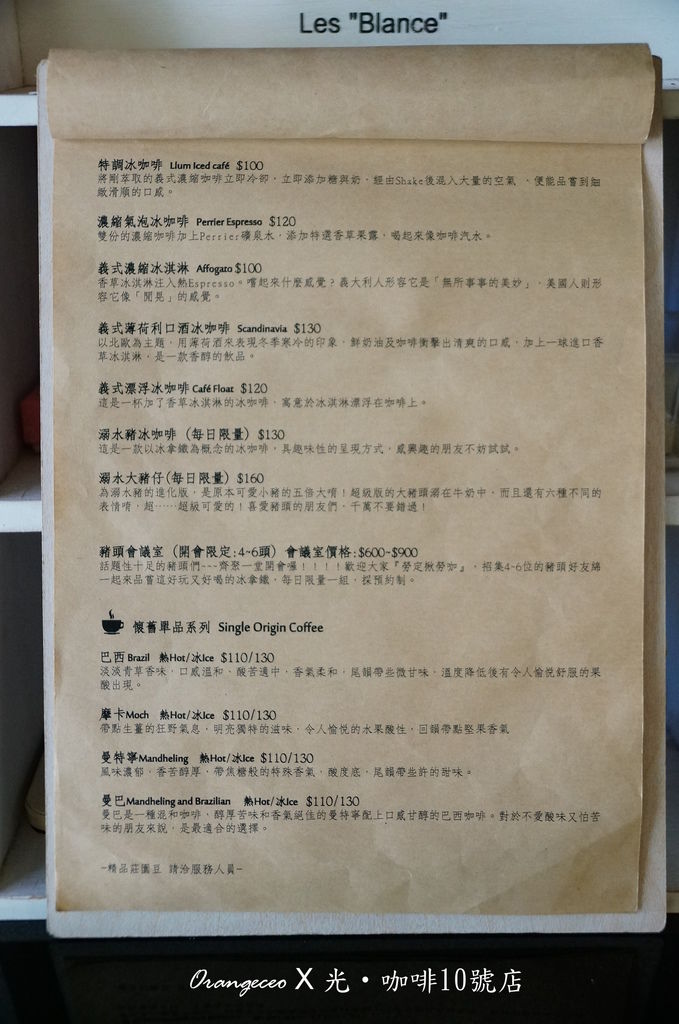 Les "Blance"
特調冰咖啡 Llum Iced café $100
將剛萃取的義式濃縮咖啡立即冷卻，立即添加糖與奶，經由Shake後混入大量的空氣，便能品嘗到細
緻滑順的口感。
濃縮氣泡冰咖啡 Perrier Espresso $120
雙份的濃縮咖啡加上Perrier礦泉水，添加特選香草果露，喝起來像咖啡汽水。
義式濃縮冰淇淋 Affogato $100
香草冰淇淋注入熱Espresso。嚐起來什麼感覺？義大利人形容它是「無所事事的美妙」，美國人則形
容它像「聞見」的感覺。
義式薄荷利口酒冰咖啡 Scandinavia $130
以北歐為主題，用薄荷酒來表現冬季寒冷的印象，鮮奶油及咖啡衝擊出清爽的口感，加上一球進口香
草冰淇淋，是一款香醇的飲品。
義式漂浮冰咖啡 Café Float $120
這是一杯加了香草冰淇淋的冰咖啡，寓意於冰淇淋漂浮在咖啡上。
溺水豬冰咖啡 (每日限量) $130
這是一款以冰拿鐵為概念的冰咖啡，具趣味性的呈現方式，感興趣的朋友不妨試試。
溺水大豬仔(每日限量) $160
為溺水豬的進化版，是原本可愛小豬的五倍大唷！超級版的大豬頭溺在牛奶中，而且還有六種不同的
表情唷，超……超級可愛的！喜愛豬頭的朋友們，千萬不要錯過！
豬頭會議室 (開會限定:4~6頭) 會議室價格:$600~$900
話題性十足的豬頭們~~~齊聚一堂開會囉！！！！歡迎大家『勞定揪勞咖』，招集4~6位的豬頭好友綿
一起來品嘗這好玩又好喝的冰拿鐵，每日限量一組，採預約制。
懷舊單品系列 Single Origin Coffee
巴西 Brazil 熱Hot/冰Ice $110/130
淡淡青草香味，口感溫和、酸苦適中，香氣柔和，尾韻帶些微甘味，溫度降低後有令人愉悅舒服的果
酸出現。
摩卡Moch 熱Hot/冰Ice $110/130
帶點生薑的狂野氣息，明亮獨特的滋味，令人愉悅的水果酸性，回韻帶點堅果香氣
曼特寧Mandheling 熱Hot/冰Ice $110/130
風味濃郁，香苦醇厚，帶焦糖般的特殊香氣，酸度底，尾韻帶些許的甜味。
曼巴Mandheling and Brazilian 熱Hot/冰Ice $110/130
曼巴是一種混和咖啡，醇厚苦味和香氣絕佳的曼特寧配上口感甘醇的巴西咖啡。對於不愛酸味又怕苦
味的朋友來說，是最適合的選擇。
-精品莊園豆 請洽服務人員-
Orangeceo X 光・咖啡10號店